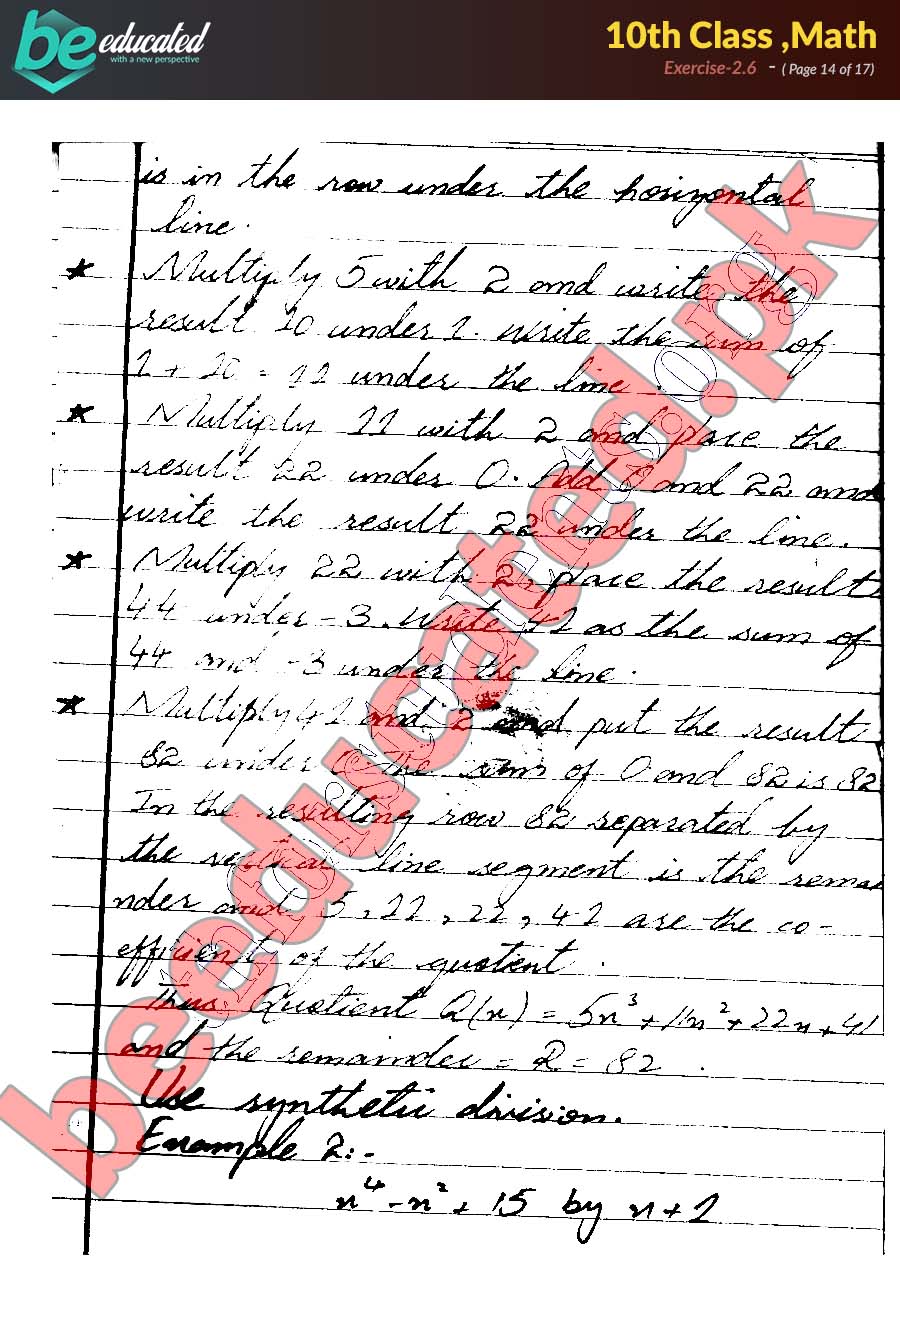 be educated
with a new perspective
10th Class ,Math
Exercise-2.6 - ( Page 14 of 17)
is in the row under the horizontal
line.
★ Multiply 5 with 2 and write the
result 10 under 1. Write the sum of
1 + 10 = 11 under the line.
★ Multiply 11 with 2 and place the
result 22 under 0. Add 0 and 22 and
write the result 22 under the line.
★ Multiply 22 with 2, place the result
44 under -3. Write 41 as the sum of
44 and -3 under the line.
★ Multiply 41 and 2 and put the result
82 under 0 the sum of 0 and 82 is 82
In the resulting row 82 separated by
the vertical line segment is the remai
nder and 5, 11, 22, 41 are the co-
efficients of the quotient.
Thus Quotient Q(x) = 5x³ + 11x² + 22x + 41
and the remainder = R = 82 .
Use synthetic division.
Example 2:-
x⁴ - x² + 15 by x + 1
beeducated.pk